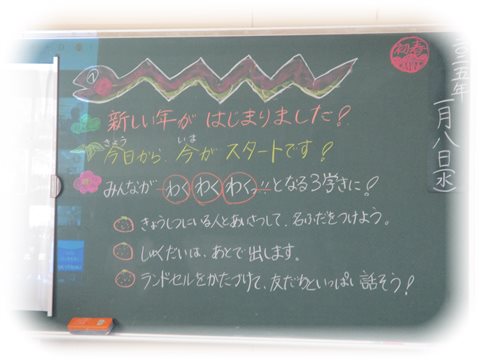 初春
二〇二五年
一月八日(水)
新しい年が はじまりました!
今日から 今が スタートです!
きょう いま
みんなが わく わく わくっ!! となる3学きに!
きょうしつにいる人とあいさつして、名ふだをつけよう。
しゅくだいは、あとで出します。
ランドセルをかたづけて、友だちといっぱい話そう!